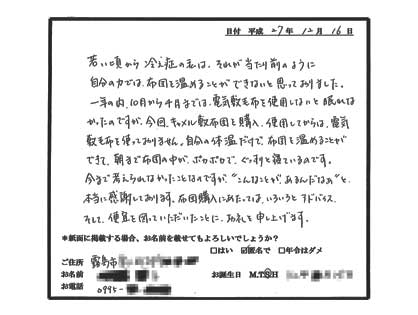 日付 平成 27年 12月 16日
若い頃から冷え症の私は、それが当たり前のように
自分の力では、布団を温めることができないと思っておりました。
一年の内、10月から4月までは、電気敷毛布を使用しないと眠れな
かったのですが、今回、キャメル敷布団を購入、使用してからは、電気
敷毛布を使っておりません。自分の体温だけで、布団を温めることが
できて、朝まで布団の中が、ポカポカで、ぐっすりと寝ているのです。
今まで考えられなかったことなのですが、"こんなことが、あるんだなぁ"と、
本当に感謝しております。布団購入にあたっては、いろいろとアドバイス、
そして、便宜を図っていただいたことに、お礼を申し上げます。
*紙面に掲載する場合、お名前を載せてもよろしいでしょうか?
□はい ☑匿名で □年令はダメ
ご住所 霧島市
お名前 お誕生日 M.T.S.H
お電話 0995-